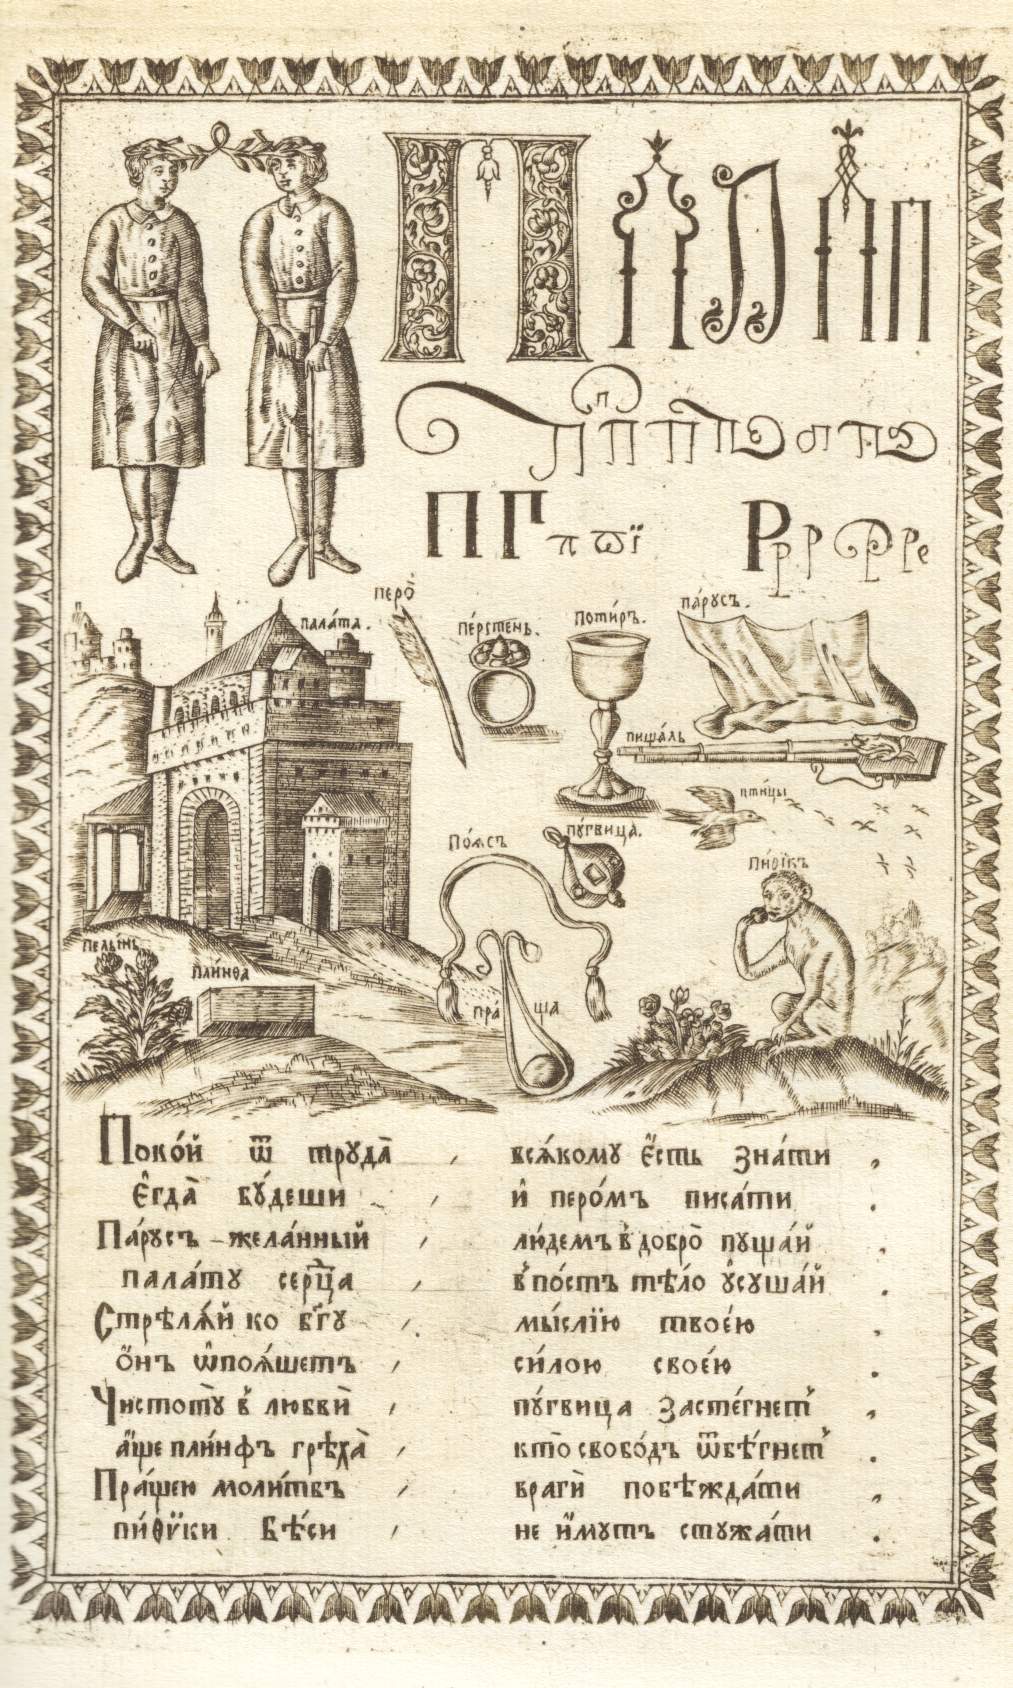 П П П П П
п П П П П
П Г п ѿ ї
Р р р р ре
перо̀
пала́та.
пе́рстень.
поти́ръ.
па́русъ.
пища́ль
птицы
по́ясъ
пу́гвица.
пи́ѳїкъ
пелынь
пли́нѳа
пра́ ща
Поко́й ѿ труда̀ , вся́кому є҆́сть зна́ти ,
є҆гда̀ бу́деши , и҆ перо́мъ писа́ти .
Па́русъ жела́нный , лю́демъ в̾ добро̀ пуща́й .
пала́ту се́рдца , в̾ по́стъ тѣ́ло ᲂу҆суша́й .
Стрѣля́й ко бг҃у , мы́слїю твое́ю .
ѻ҆́нъ ѡ҆поя́шетъ , си́лою свое́ю .
Чистотꙋ̀ в̾ любвѝ , пу́гвица засте́гнет̾ ,
а҆́ще пли́нфъ грѣха̀ , кто̀ свобо́дъ ѿбѣ́гнет̾ .
Пра́щею моли́твъ , врагѝ побѣжда́ти ,
пи́ѳїки бѣ́си , не и҆́мутъ стужа́ти .